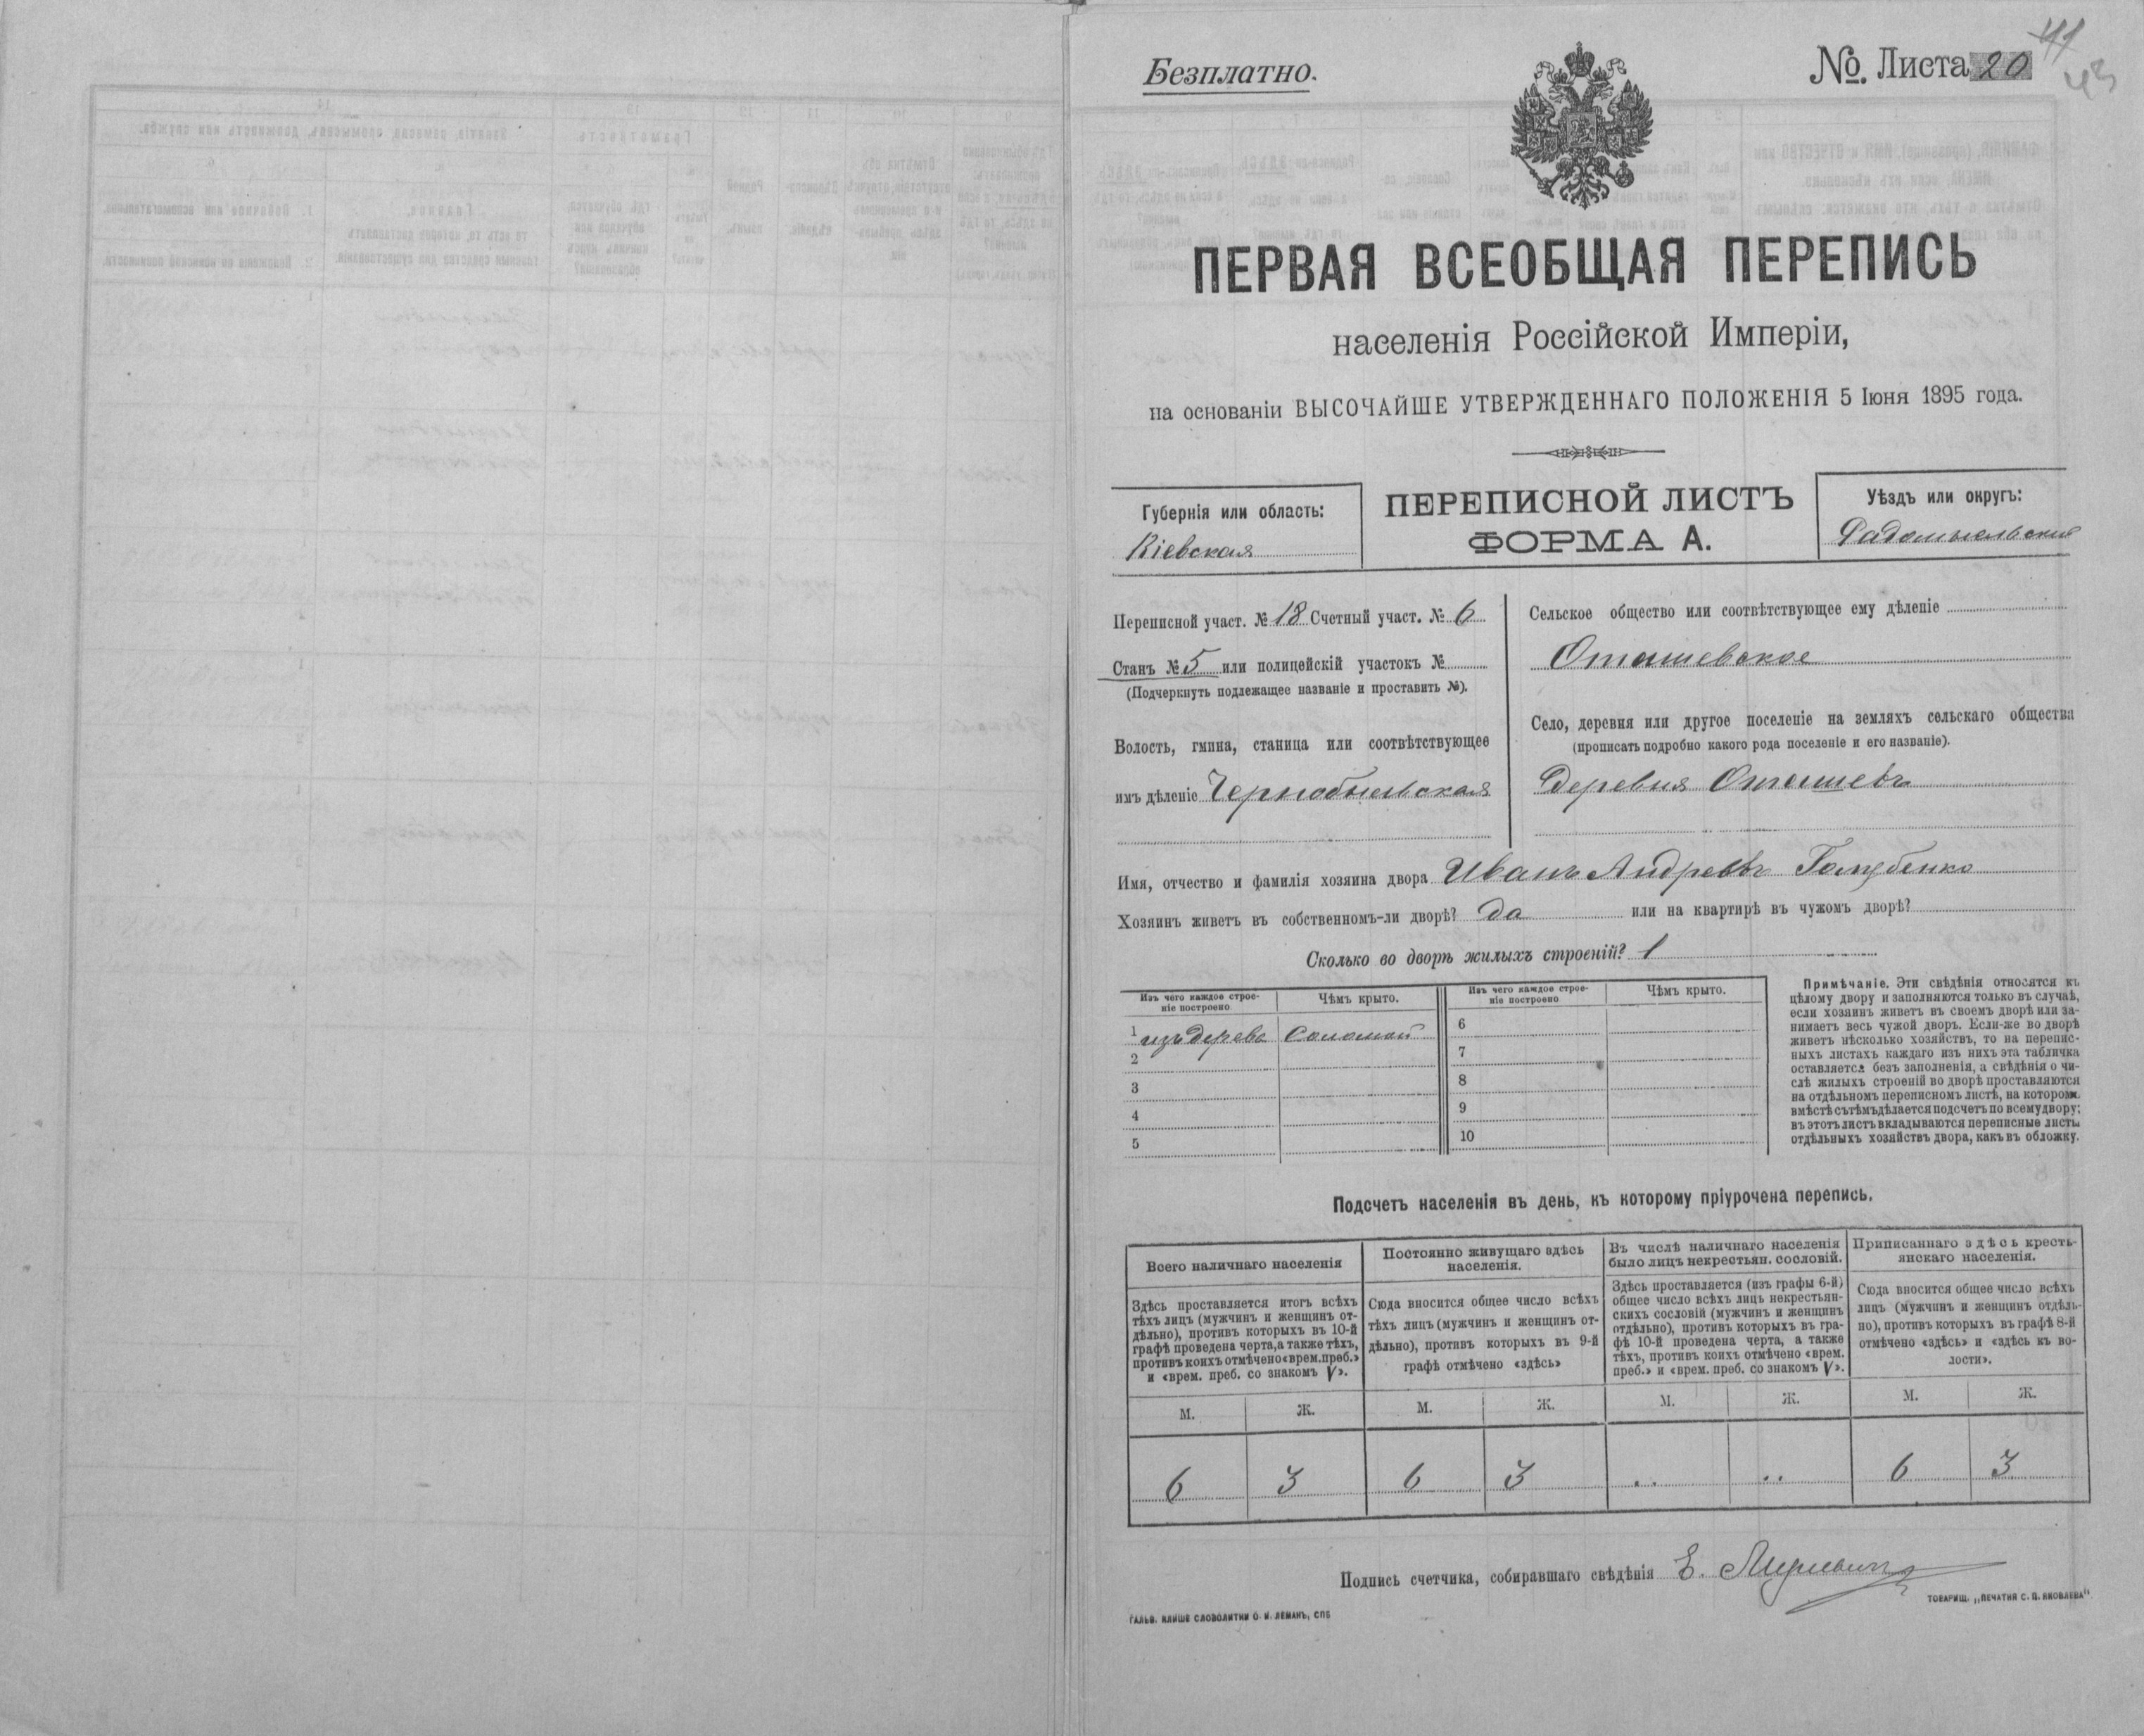 Безплатно.
№. Листа 20
41
43
ПЕРВАЯ ВСЕОБЩАЯ ПЕРЕПИСЬ
населенія Россійской Имперіи,
на основаніи ВЫСОЧАЙШЕ УТВЕРЖДЕННАГО ПОЛОЖЕНІЯ 5 Іюня 1895 года.
Губернія или область:
Кіевская
ПЕРЕПИСНОЙ ЛИСТЪ
ФОРМА А.
Уѣздъ или округъ:
Радомысльскій
Переписной участ. № 18 Счетный участ. № 6
Станъ № 5 или полицейскій участокъ №
(Подчеркнуть подлежащее названіе и проставить №).
Волость, гмина, станица или соотвѣтствующее
имъ дѣленіе Чернобыльская
Сельское общество или соотвѣтствующее ему дѣленіе
Оташевское
Село, деревня или другое поселеніе на земляхъ сельскаго общества
(прописать подробно какого рода поселеніе и его названіе).
Деревня Оташевъ
Имя, отчество и фамилія хозяина двора Иванъ Андреевъ Голубенко
Хозяинъ живетъ въ собственномъ-ли дворѣ? да или на квартирѣ въ чужомъ дворѣ?
Сколько во дворѣ жилыхъ строеній? 1
Изъ чего каждое строе-
ніе построено
Чѣмъ крыто.
Изъ чего каждое строе-
ніе построено
Чѣмъ крыто.
1 изъ дерева соломой
2
3
4
5
6
7
8
9
10
Примѣчаніе. Эти свѣдѣнія относятся къ
цѣлому двору и заполняются только въ случаѣ,
если хозяинъ живетъ въ своемъ дворѣ или за-
нимаетъ весь чужой дворъ. Если-же во дворѣ
живетъ нѣсколько хозяйствъ, то на перепис-
ныхъ листахъ каждаго изъ нихъ эта табличка
оставляется безъ заполненія, а свѣдѣнія о чи-
слѣ жилыхъ строеній во дворѣ проставляются
на отдѣльномъ переписномъ листѣ, на которомъ
вмѣстѣ съ тѣмъ дѣлается подсчетъ по всему двору;
въ этотъ листъ вкладываются переписные листы
отдѣльныхъ хозяйствъ двора, какъ въ обложку.
Подсчетъ населенія въ день, къ которому пріурочена перепись.
Всего наличнаго населенія
Здѣсь проставляется итогъ всѣхъ
тѣхъ лицъ (мужчинъ и женщинъ от-
дѣльно), противъ которыхъ въ 10-й
графѣ проведена черта, а также тѣхъ,
противъ коихъ отмѣчено «врем. преб.»
и «врем. преб. со знакомъ V».
Постоянно живущаго здѣсь
населенія.
Сюда вносится общее число всѣхъ
тѣхъ лицъ (мужчинъ и женщинъ от-
дѣльно), противъ которыхъ въ 9-й
графѣ отмѣчено «здѣсь»
Въ числѣ наличнаго населенія
было лицъ некрестьян. сословій.
Здѣсь проставляется (изъ графы 6-й)
общее число всѣхъ лицъ некрестьян-
скихъ сословій (мужчинъ и женщинъ
отдѣльно), противъ которыхъ въ гра-
фѣ 10-й проведена черта, а также
тѣхъ, противъ коихъ отмѣчено «врем.
преб.» и «врем. преб. со знакомъ V».
Приписаннаго здѣсь кресть-
янскаго населенія.
Сюда вносится общее число всѣхъ
лицъ (мужчинъ и женщинъ отдѣль-
но), противъ которыхъ въ графѣ 8-й
отмѣчено «здѣсь» и «здѣсь къ во-
лости».
М. Ж. М. Ж. М. Ж. М. Ж.
6 3 6 3 .. .. 6 3
Подпись счетчика, собиравшаго свѣдѣнія Е.
ГАЛЬВ. КЛИШЕ СЛОВОЛИТНИ О. И. ЛЕМАНЪ, СПБ
ТОВАРИЩ. „ПЕЧАТНЯ С. П. ЯКОВЛЕВА“